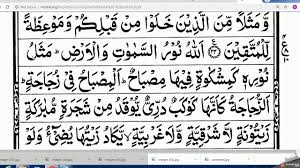 وَّمَثَلًا مِّنَ الَّذِيْنَ خَلَوْا مِنْ قَبْلِكُمْ وَمَوْعِظَةً
لِّلْمُتَّقِيْنَ ﴿٣٤﴾ اَللّٰهُ نُوْرُ السَّمٰوٰتِ وَالْاَرْضِ ؕ مَثَلُ
نُوْرِهٖ كَمِشْكٰوةٍ فِيْهَا مِصْبَاحٌ ؕ اَلْمِصْبَاحُ فِيْ زُجَاجَةٍ ؕ
اَلزُّجَاجَةُ كَاَنَّهَا كَوْكَبٌ دُرِّيٌّ يُّوْقَدُ مِنْ شَجَرَةٍ مُّبٰرَكَةٍ
زَيْتُوْنَةٍ لَّا شَرْقِيَّةٍ وَّلَا غَرْبِيَّةٍ ۙ يَّكَادُ زَيْتُهَا يُضِيْٓءُ وَلَوْ